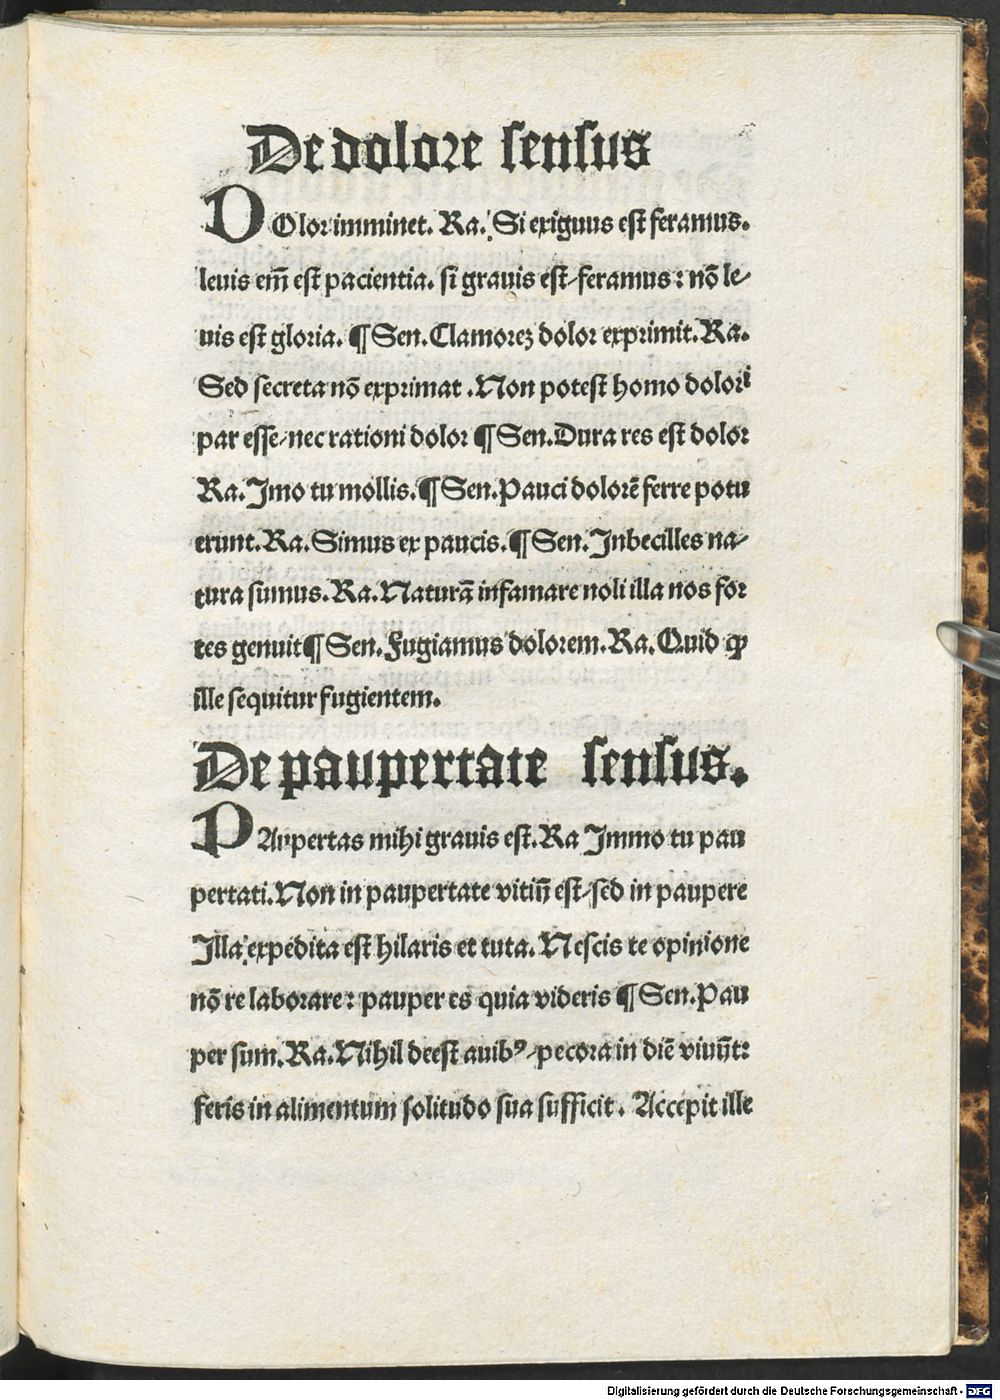 De dolore sensus
DOlor imminet. Ra. Si exiguus est feramus.
leuis em̄ est paciencia. si grauis est/feramus: nō le/
uis est gloria. ¶ Sen. Clamorez dolor exprimit. Ra.
Sed secreta nō exprimat. Non potest homo dolori
par esse/nec rationi dolor ¶ Sen. Dura res est dolor
Ra. Imo tu mollis. ¶ Sen. Pauci dolorē ferre potu
erunt. Ra. Simus ex paucis. ¶ Sen. Inbecilles na/
tura sumus. Ra. Naturā infamare noli illa nos for
tes genuit ¶ Sen. Fugiamus dolorem. Ra. Quid ꝙ
ille sequitur fugientem.
De paupertate sensus.
PAupertas mihi grauis est. Ra Immo tu pau
pertati. Non in paupertate vitiū est/sed in paupere
Illa expedita est hilaris et tuta. Nescis te opinione
nō re laborare: pauper es quia videris ¶ Sen. Pau
per sum. Ra. Nihil deest auibꝰ/pecora in diē viuūt:
feris in alimentum solitudo sua sufficit. Accepit ille
Digitalisierung gefördert durch die Deutsche Forschungsgemeinschaft - DFG